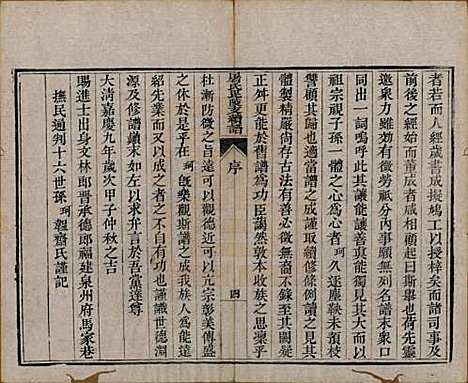 者若而人經歲書成擬鳩工以授梓矣而諸司事及
前後之經始而董成者咸相顧起曰斯舉也荷先靈
邀衆力雖劬有微勞祗分內事耳盍列名譜末衆口
同出一詞嗚呼此其讓能讓善真能獨見其大而以
祖宗視子孫一體之心爲心者
久逐塵鞅未預校
讐顧其歸也適當譜之成謹取續修條例讀之見其
體製精嚴尚存古法有善必徵無畜不錄至其闕疑
正舛更能於舊譜爲功臣謁然敦本收族之思稟乎
序
四
杜漸防微之旨遠可以觀德近可以亢宗彰美傳盛
之休於是乎在
既樂觀斯譜之成我族人無能遠
紹先業而又以成之者之不自有功也謹識世德淵
源及今修譜顛末如左以求折衷於吾黨達尊
大清嘉慶九年歲次甲子仲秋之吉
賜進士出身文林郎晉承德郎福建泉州府馬家巷
撫民通判十六世孫
韞齋氏謹記